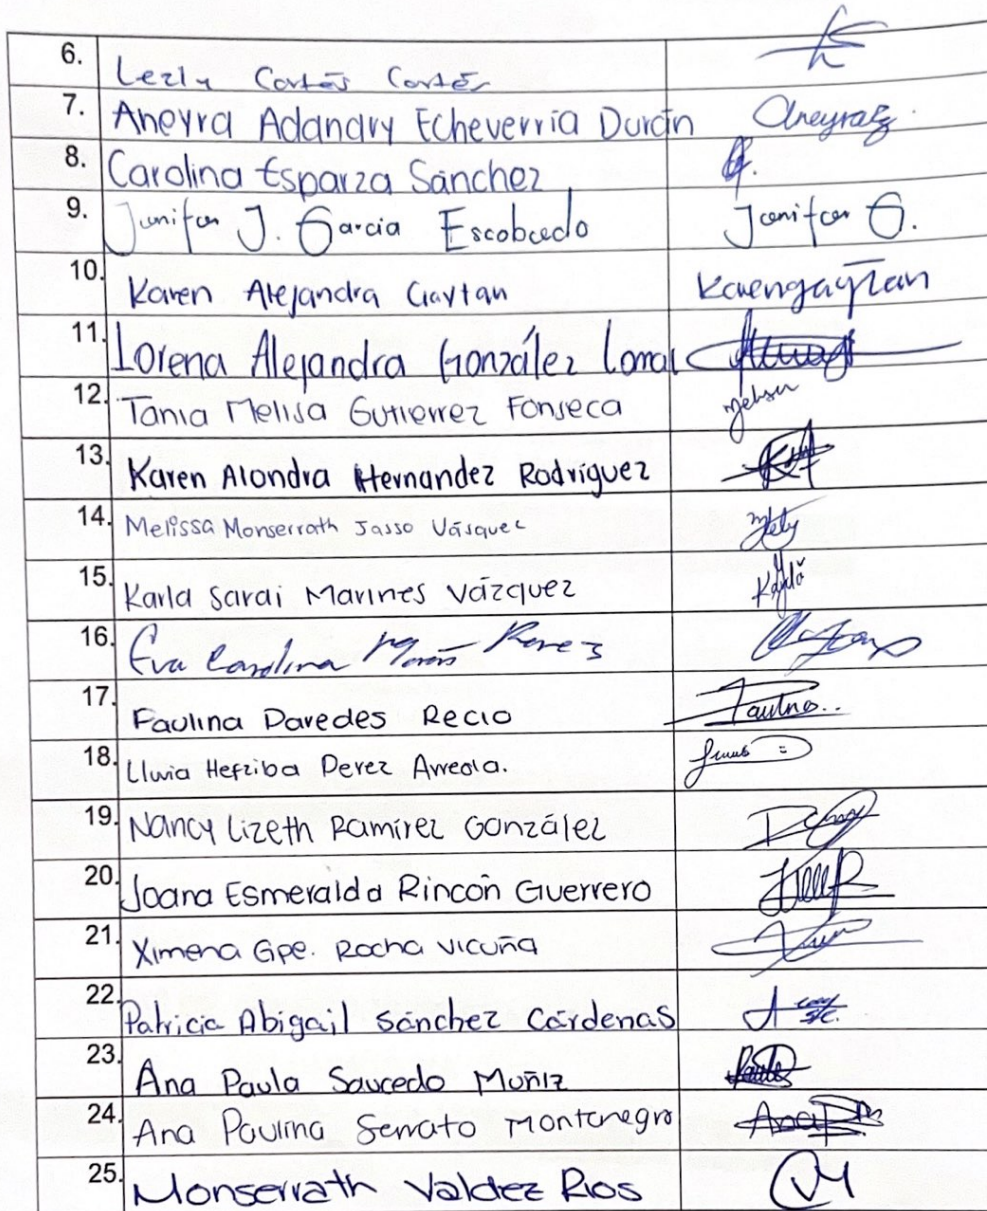 6. Lezly Cortés Cortés
7. Aneyra Adandry Echeverria Durán
8. Carolina Esparza Sánchez
9. Junifer J. Garcia Escobedo Junifer G.
10. Karen Alejandra Gaytan Karengaytan
11. Lorena Alejandra González
12. Tania Melisa Gutierrez Fonseca
13. Karen Alondra Hernandez Rodríguez
14. Melissa Monserrath Jasso Vásquez
15. Karla Sarai Marines Vázquez Karla
16. Eva Carolina
17. Paulina Paredes Recio
18. Lluvia Hefziba Perez Arreola.
19. Nancy Lizeth Ramírez González
20. Joana Esmeralda Rincón Guerrero
21. Ximena Gpe. Rocha Vicuña
22. Patricia Abigail Sánchez Cárdenas
23. Ana Paula Saucedo Muñiz
24. Ana Paulina Serrato Montenegro
25. Monserrath Valdez Rios